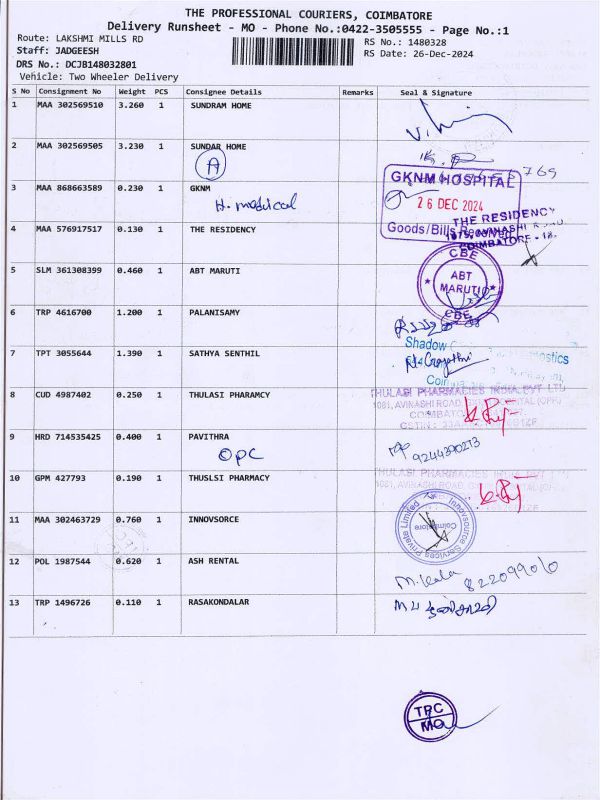 THE PROFESSIONAL COURIERS, COIMBATORE
Delivery Runsheet - MO - Phone No.:0422-3505555 - Page No.:1
Route: LAKSHMI MILLS RD
RS No.: 1480328
Staff: JADGEESH
RS Date: 26-Dec-2024
DRS No.: DCJB148032801
Vehicle: Two Wheeler Delivery
S No Consignment No Weight PCS Consignee Details Remarks Seal & Signature
1 MAA 302569510 3.260 1 SUNDRAM HOME
2 MAA 302569505 3.230 1 SUNDAR HOME
A
3 MAA 868663589 0.230 1 GKNM
H. medical
GKNM HOSPITAL
26 DEC 2024
Goods/Bills Received
4 MAA 576917517 0.130 1 THE RESIDENCY
THE RESIDENCY
COIMBATORE - 18.
5 SLM 361308399 0.460 1 ABT MARUTI
CBE
ABT
MARUTI
CBE
6 TRP 4616700 1.200 1 PALANISAMY
7 TPT 3055644 1.390 1 SATHYA SENTHIL
Shadow
8 CUD 4987402 0.250 1 THULASI PHARAMCY
THULASI PHARMACIES INDIA PVT LTD
1081, AVINASHI ROAD
9 HRD 714535425 0.400 1 PAVITHRA
OPC
9244390273
10 GPM 427793 0.190 1 THUSLSI PHARMACY
THULASI PHARMACIES INDIA PVT LTD
11 MAA 302463729 0.760 1 INNOVSORCE
Innovsource Services Private Limited
Coimbatore
12 POL 1987544 0.620 1 ASH RENTAL
M. Kala 822099060
13 TRP 1496726 0.110 1 RASAKONDALAR
TPC
MO